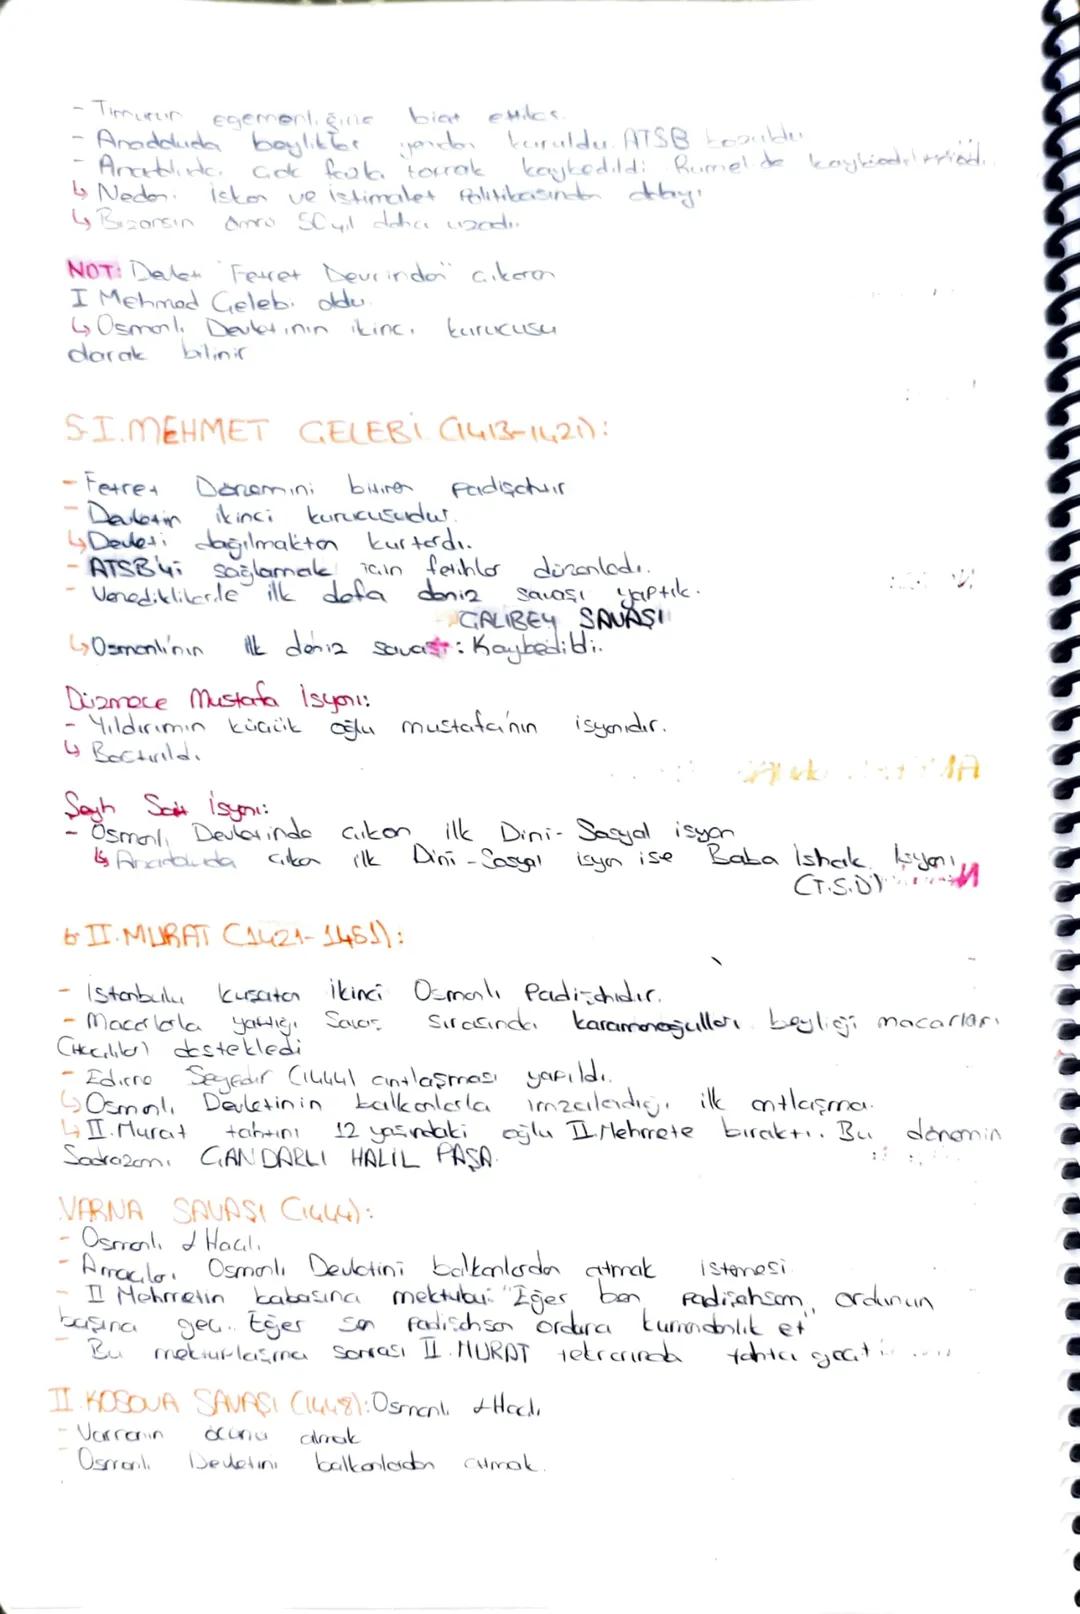 - Timurun egemenliğine biat ettiler.
- Anadoluda beylikler yeniden kuruldu. ATSB bozuldu
- Anadoluda çok fazla toprak kaybedildi Rumelide kaybedilmedi.
↳ Neden: iskan ve istimalet Politikasından dolayı
↳ Bizansın ömrü 50 yıl daha uzadı.
NOT: Devleti "Fetret Devrinden" çıkaran
I Mehmed Çelebi oldu.
↳ Osmanlı Devletinin ikinci kurucusu
olarak bilinir
5-I.MEHMET ÇELEBİ (1413-1421):
- Fetret Dönemini bitiren padişahtır
- Devletin ikinci kurucusudur.
↳ Devleti dağılmaktan kurtardı.
- ATSB'yi sağlamak için fetihler düzenledi.
- Venediklilerle ilk defa deniz savaşı yaptık.
GALİBEY SAVAŞI
↳ Osmanlı'nın ilk deniz savaşı: Kaybedildi.
Düzmece Mustafa İsyanı:
- Yıldırımın küçük oğlu mustafa'nın isyanıdır.
↳ Bastırıldı.
Şeyh Sait İsyanı:
- Osmanlı Devletinde çıkan ilk Dini-Sosyal isyan
↳ Anadoluda çıkan ilk Dini-Sosyal isyan ise Baba İshak İsyanı
(T.S.D)
6-II.MURAT (1421-1451):
- İstanbulu kuşatan ikinci Osmanlı Padişahıdır.
- Macarlarla yaptığı Savaş sırasında karamanoğulları beyliği macarları
(Haçlıları) destekledi
- Edirne Segedin (1444) antlaşması yapıldı.
↳ Osmanlı Devletinin balkanlarla imzaladığı ilk antlaşma.
↳ II.Murat tahtını 12 yaşındaki oğlu II.Mehmete bıraktı. Bu dönemin
Sadrazamı ÇANDARLI HALİL PAŞA.
VARNA SAVAŞI (1444):
- Osmanlı & Haçlı
- Amaçları Osmanlı Devletini balkanlardan atmak istemesi
- II Mehmetin babasına mektubu: "Eğer ben padişahsam, ordunun
başına geç. Eğer sen padişahsan orduna kumandanlık et"
- Bu mektuplaşma sonrası II.MURAT tekrardan tahta geçti.
II.KOSOVA SAVAŞI (1448): Osmanlı & Haçlı
- Varnanın öcünü almak
- Osmanlı Devletini balkanlardan atmak.